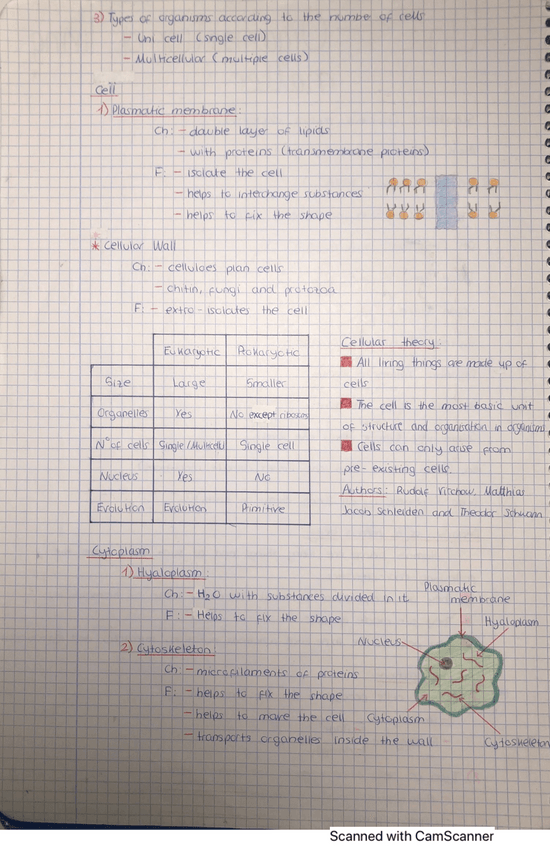 3) Types of organisms according to the numbe of cells
- Uni cell (single cell)
- Multicellular (multiple cells)
Cell
1) Plasmatic membrane:
Ch: - dauble layer of lipids
- with proteins (transmembrane proteins)
F: - isolate the cell
- helps to interchange substances
- helps to fix the shape
* Cellular Wall
Ch: - celluloes plan cells
- chitin, fungi and protozoa
F: - extra-isolates the cell
Eukaryotic Prokaryotic
Size Large Smaller
Organelles Yes No except ribosos
Nº of cells Single/Multicellu Single cell
Nucleus Yes No
Evolution Evolution Primitive
Cellular theory:
All living things are made up of
cells
The cell is the most basic unit
of structure and organisation in organisms
Cells can only arise from
pre-existing cells.
Authors: Rudolf Virchow, Matthias
Jacob Schleiden and Theodor Schwann
Cytoplasm
1) Hyaloplasm:
Ch: - H2O with substances divided in it
F: - Helps to fix the shape
2) Cytoskeleton:
Ch: - microfilaments of proteins
F: - helps to fix the shape
- helps to move the cell
- transports organelles inside the wall
Plasmatic
membrane
Hyaloplasm
Nucleus
Cytoplasm
Cytoskeleton
Scanned with CamScanner